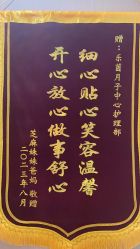 赠：乐茵月子中心护理部
细心贴心笑容温馨
开心放心做事舒心
芝麻妹妹爸妈 敬赠
二〇二三年八月